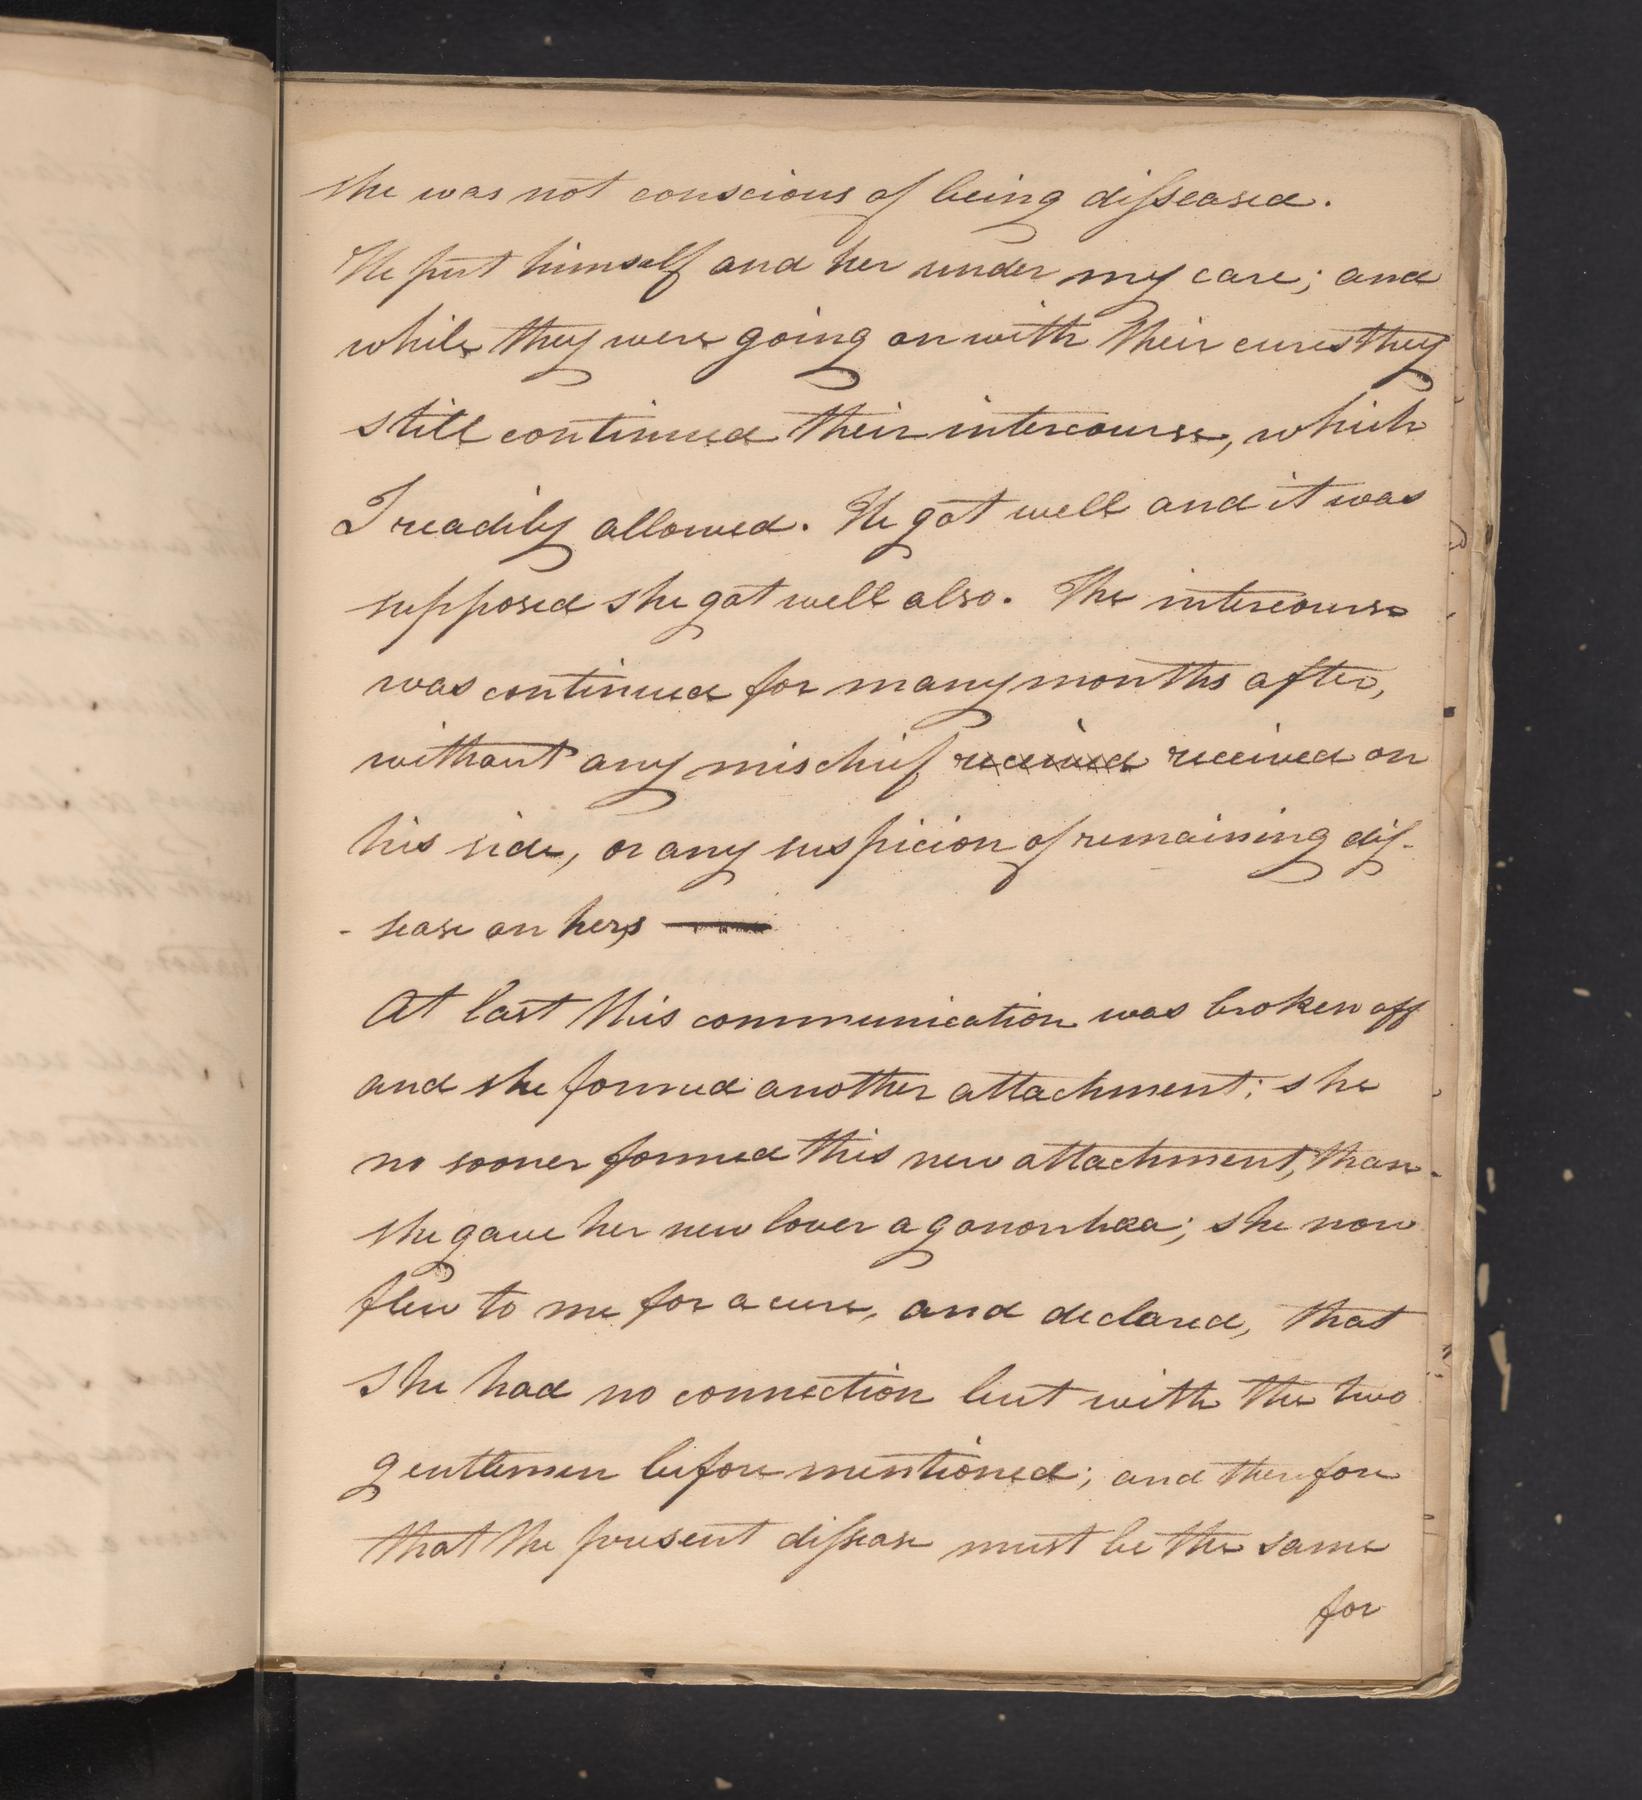 she was not conscious of being disseased.
He put himself and her under my care; and
while they were going on with their cures they
still continued their intercourse, which
I readily allowed. He got well and it was
supposed she got well also. The intercourse
was continued for many months after,
without any mischief received received on
his side, or any suspicion of remaining dis-
- sease on hers —
At last this communication was broken off
and she formed another attachment; she
no sooner formed this new attachment, than
she gave her new lover a gonorrhœa; she now
flew to me for a cure, and declared, that
She had no connection but with the two
gentlemen before mentioned; and therefore
that the present dissease must be the same
for